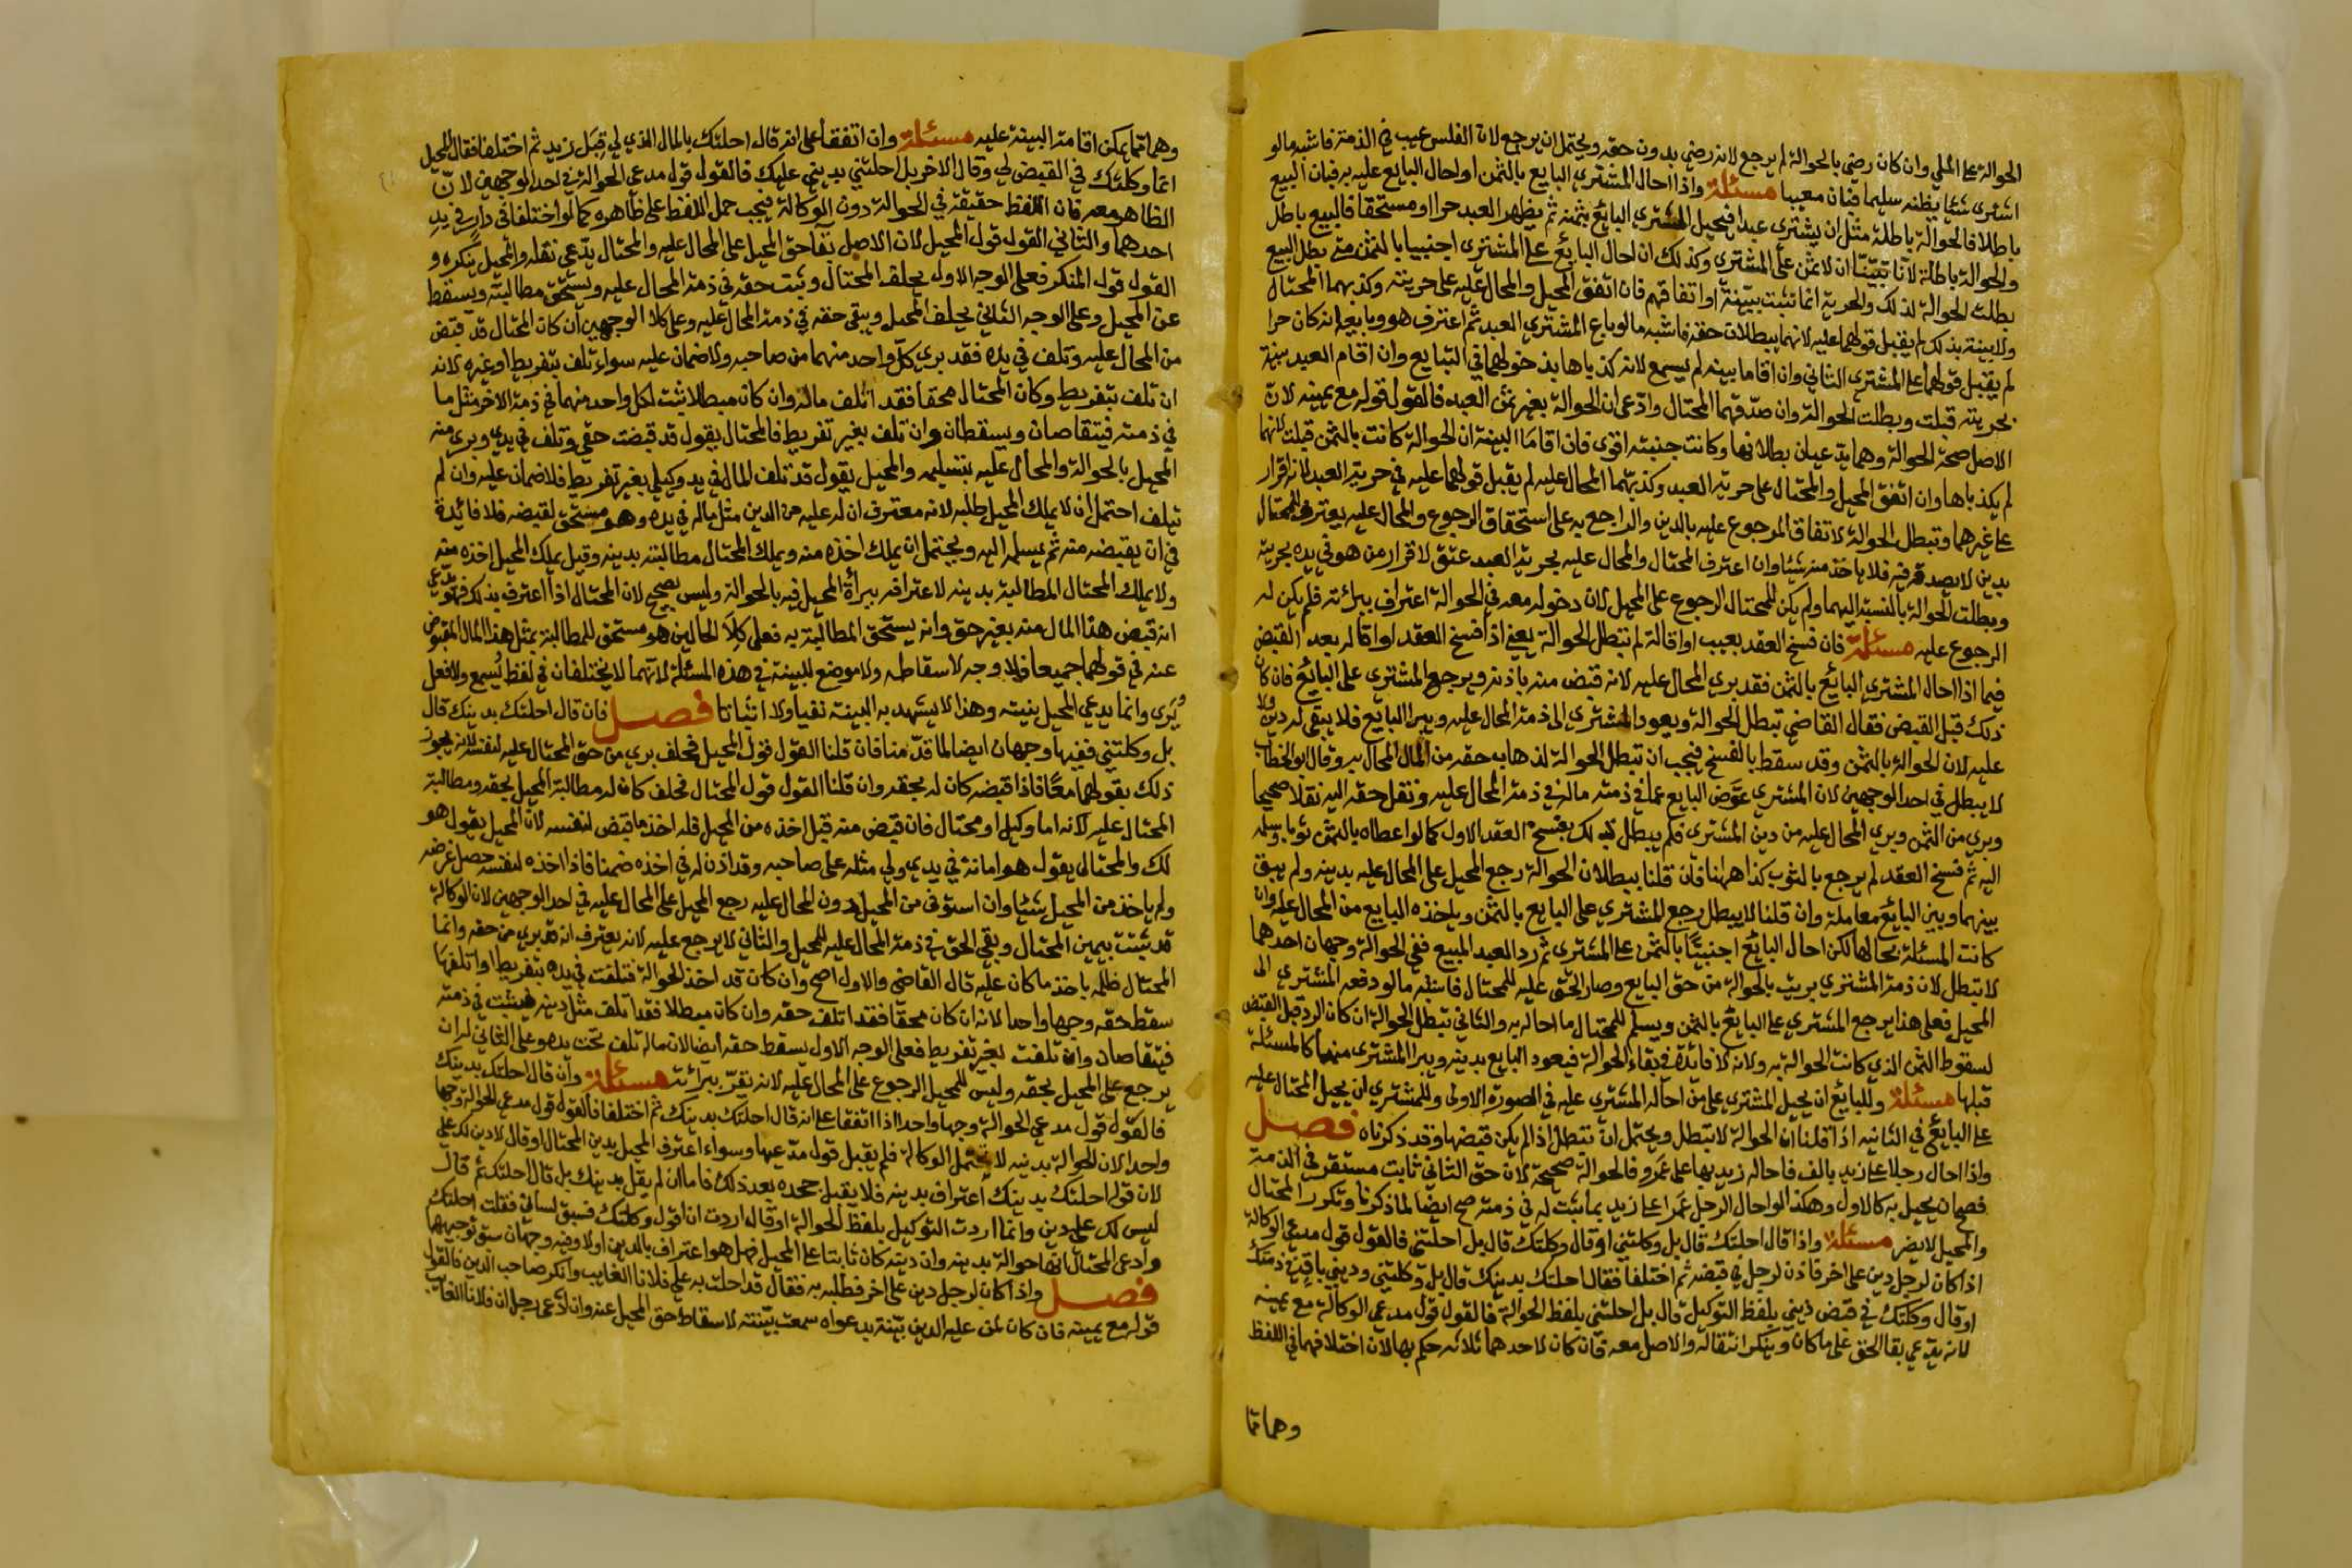 الحوالة على الملي وان كان رضي بالحوالة لم يرجع لانه رضي بدون حقه ويحتمل ان يرجع لان الفلس عيب في الذمة فاشبه ما لو
اشترى شيئا يظنه سليما فبان معيبا مسئلة واذا احال المشتري البايع بالثمن او احال البايع عليه به فبان البيع
باطلا فالحوالة باطلة مثل ان يشتري عبدا فيحيل المشتري البائع بثمنه ثم يظهر العبد حرا او مستحقا فالبيع باطل
والحوالة باطلة لانا تبينا ان لا ثمن على المشتري وكذلك ان احال البائع على المشتري اجنبيا بالثمن متى بطل البيع
بطلت الحوالة لذلك والحرية انما تثبت ببينة او اتفاقهم فان اتفق المحيل والمحال عليه على حريته وكذبهما المحتال
ولا بينة بذلك لم يقبل قولهما عليه لانهما يبطلان حقه فاشبه ما لو باع المشتري العبد ثم اعترف هو وبايعه انه كان حرا
لم يقبل قولهما على المشتري الثاني وان اقاما بينة لم يسمع لانه كذباها بدخولهما في التبايع وان اقام العبد بينة
بحريته قبلت وبطلت الحوالة وان صدقهما المحتال وادعى ان الحوالة بغير ثمن العبد فالقول قوله مع يمينه لان
الاصل صحة الحوالة وهما يدعيان بطلانها وكانت جنبته اقوى فان اقاما البينة ان الحوالة كانت بالثمن قبلت لانهما
لم يكذباها وان اتفق المحيل والمحتال على حرية العبد وكذبهما المحال عليه لم يقبل قولهما عليه في حرية العبد لانه اقرار
على غيرهما وتبطل الحوالة لاتفاق المرجوع عليه بالدين والراجع به على استحقاق الرجوع والمحال عليه يعترف للمحتال
بدين لا يصدقه فيه فلا ياخذ منه شيئا وان اعترف المحتال والمحال عليه بحرية العبد عتق لاقرار من هو في يده بحريته
وبطلت الحوالة بالنسبة اليهما ولم يكن للمحتال الرجوع على المحيل لان دخوله معه في الحوالة اعتراف ببرائته فلم يكن له
الرجوع عليه مسئلة فان فسخ العقد بعيب او اقالة لم تبطل الحوالة يعني اذا فسخ العقد او اقاله بعد القبض
فيما اذا احال المشتري البائع بالثمن فقد بري المحال عليه لانه قبض منه باذنه ويرجع المشتري على البائع فان كان
ذلك قبل القبض فقال القاضي تبطل الحوالة ويعود المشتري الى ذمة المحال عليه ويبرا البايع فلا يبقى له دين ولا
عليه لان الحوالة بالثمن وقد سقط بالفسخ فيجب ان تبطل الحوالة لذهاب حقه من المال المحال به وقال ابو الخطاب
لا يبطل في احد الوجهين لان المشتري عوض البايع عما في ذمته ماله في ذمة المحال عليه ونقل حقه اليه نقلا صحيحا
وبري من الثمن وبري المحال عليه من دين المشتري فلم يبطل ذلك بفسخ العقد الاول كما لو اعطاه بالثمن ثوبا وسلمه
اليه ثم فسخ العقد لم يرجع بالثوب كذا ههنا فان قلنا ببطلان الحوالة رجع المحيل على المحال عليه بدينه ولم يبق
بينهما وبين البائع معاملة وان قلنا لا يبطل رجع المشتري على البايع بالثمن وياخذه البايع من المحال عليه وان
كانت المسئلة بحالها لكن احال البائع اجنبيا بالثمن على المشتري ثم رد العبد المبيع ففي الحوالة وجهان احدهما
لا تبطل لان ذمة المشتري بريت بالحوالة من حق البايع وصار الحق عليه للمحتال فاشبه ما لو دفعه المشتري الى
المحيل فعلى هذا يرجع المشتري على البائع بالثمن ويسلم للمحتال ما احاله به والثاني تبطل الحوالة ان كان الرد قبل القبض
لسقوط الثمن الذي كانت الحوالة به ولانه لا فائدة في بقاء الحوالة فيعود البايع بدينه ويبرا المشتري منهما كالمسئلة
قبلها مسئلة وللبائع ان يحيل المشتري على من احاله المشتري عليه في الصورة الاولى وللمشتري ان يحيل المحتال عليه
على البائع في الثانية اذا قلنا ان الحوالة لا تبطل ويحتمل ان تبطل اذا لم يكن قبضها وقد ذكرناه فصل
واذا احال رجلا على زيد بالف فاحاله زيد بها على عمرو فالحوالة صحيحة لان حق الثاني ثابت مستقر في الذمة
فصح ان يحيل به كالاول وهكذا لو احال الرجل عمرا على زيد بما ثبت له في ذمته صح ايضا لما ذكرنا وتكرر المحتال
والمحيل لا يضر مسئلة واذا قال احلتك قال بل وكلتني او قال وكلتك قال بل احلتني فالقول قول مدعي الوكالة
اذا كان لرجل دين على اخر فاذن لرجل في قبضه ثم اختلفا فقال احلتك بدينك قال بل وكلتني وديني باق في ذمتك
او قال وكلتك في قبض ديني بلفظ التوكيل قال بل احلتني بلفظ الحوالة فالقول قول مدعي الوكالة مع يمينه
لانه يدعي بقا الحق على ما كان وينكر انتقاله والاصل معه فان كان لاحدهما بينة حكم بها لان اختلافهما في اللفظ
وهما مما
وهما مما يمكن اقامة البينة عليه مسئلة وان اتفقا على انه قال احلتك بالمال الذي لي قبل زيد ثم اختلفا فقال المحيل
انما وكلتك في القبض لي وقال الاخر بل احلتني بديني عليك فالقول قول مدعي الحوالة في احد الوجهين لان
الظاهر معه فان اللفظ حقيقة في الحوالة دون الوكالة فيجب حمل اللفظ على ظاهره كما لو اختلفا في دار في يد
احدهما والثاني القول قول المحيل لان الاصل بقا حق المحيل على المحال عليه والمحتال يدعي نقله والمحيل ينكره و
القول قول المنكر فعلى الوجه الاول يحلف المحتال وثبت حقه في ذمة المحال عليه ويستحق مطالبته ويسقط
عن المحيل وعلى الوجه الثاني يحلف المحيل ويبقى حقه في ذمة المحال عليه وعلى كلا الوجهين ان كان المحتال قد قبض
من المحال عليه وتلف في يده فقد بري كل واحد منهما من صاحبه ولا ضمان عليه سواء تلف بتفريط او غيره لانه
ان تلف بتفريط وكان المحتال محقا فقد اتلف ماله وان كان مبطلا ثبت لكل واحد منهما في ذمة الاخر مثل ما
في ذمته فيتقاصان ويسقطان وان تلف بغير تفريط فالمحتال يقول قد قبضت حقي وتلف في يدي وبري منه
المحيل بالحوالة والمحال عليه بتسليمه والمحيل يقول قد تلف المال في يد وكيلي بغير تفريط فلا ضمان عليه وان لم
تيلف احتمل ان لا يملك المحيل طلبه لانه معترف ان له عليه من الدين مثل ماله في يده وهو مستحق لقبضه فلا فائدة
في ان يقبضه منه ثم يسلمه اليه ويحتمل ان يملك اخذه منه ويملك المحتال مطالبته بدينه وقيل يملك المحيل اخذه منه
ولا يملك المحتال المطالبة بدينه لاعترافه ببراءة المحيل فيه بالحوالة وليس بصحيح لان المحتال اذا اعترف بذلك فهو يدعي
انه قبض هذا المال منه بغير حق وانه يستحق المطالبة به فعلى كلا الحالين هو مستحق للمطالبة بمثل هذا المال المقبوض
عنه في قولهما جميعا فلا وجه لاسقاطه ولا موضع للبينة في هذه المسئلة لانهما لا يختلفان في لفظ يسمع ولا فعل
يرى وانما يدعي المحيل بنيته وهذا لا يشهد به البينة نفيا ولا اثباتا فصل فان قال احلتك بدينك قال
بل وكلتني ففيها وجهان ايضا لما قدمنا فان قلنا القول قول المحيل فحلف بري من حق المحتال عليه لنفسه لانه يجوز
ذلك بقولهما معا فاذا قبضه كان له بحقه وان قلنا القول قول المحتال فحلف كان له مطالبة المحيل بحقه ومطالبة
المحتال عليه لانه اما وكيل او محتال فان قبض منه قبل اخذه من المحيل فله اخذ ما قبض لنفسه لان المحيل يقول هو
لك والمحتال يقول هو امانة في يدي ولي مثله على صاحبه وقد اذن له في اخذه ضمنا فاذا اخذه لنفسه حصل غرضه
ولم ياخذ من المحيل شيئا وان استوفى من المحيل دون المحال عليه رجع المحيل على المحال عليه في احد الوجهين لان الوكالة
قد ثبتت بيمين المحتال وبقي الحق في ذمة المحال عليه للمحيل والثاني لا يرجع عليه لانه يعترف انه قد بري من حقه وانما
المحتال ظلمه باخذ ما كان عليه قال القاضي والاول اصح وان كان قد اخذ الحوالة فتلفت في يده بتفريط او اتلفها
سقط حقه وجها واحدا لانه ان كان محقا فقد اتلف حقه وان كان مبطلا فقد اتلف مثل دينه فيثبت في ذمته
فيتقاصان وان تلفت بغير تفريط فعلى الوجه الاول يسقط حقه ايضا لان ماله تلف تحت يده وعلى الثاني له ان
يرجع على المحيل بحقه وليس للمحيل الرجوع على المحال عليه لانه يقر ببرائته مسئلة وان قال احلتك بدينك
فالقول قول مدعي الحوالة وجها واحدا اذا اتفقا على انه قال احلتك بدينك ثم اختلفا فالقول قول مدعي الحوالة وجها
واحدا لان الحوالة بدينه لا تحتمل الوكالة فلم يقبل قول مدعيها وسواء اعترف المحيل بدين المحتال او قال لا دين لك علي
لان قوله احلتك بدينك اعتراف بدينه فلا يقبل جحده بعد ذلك فاما ان لم يقل بدينك بل قال احلتك ثم قال
ليس لك علي دين وانما اردت التوكيل بلفظ الحوالة او قال اردت ان اقول وكلتك فسبق لساني فقلت احلتك
وادعى المحتال انها حوالة بدينه وان دينه كان ثابتا على المحيل فهل هو اعتراف بالدين اولا وفيه وجهان سبق توجيههما
فصل واذا كان لرجل دين على اخر فطلبه به فقال قد احلت به علي فلانا الغايب وانكر صاحب الدين فالقول
قوله مع يمينه فان كان لمن عليه الدين بينة بدعواه سمعت بينته لاسقاط حق المحيل عنه وان ادعى رجل ان فلانا الغائب